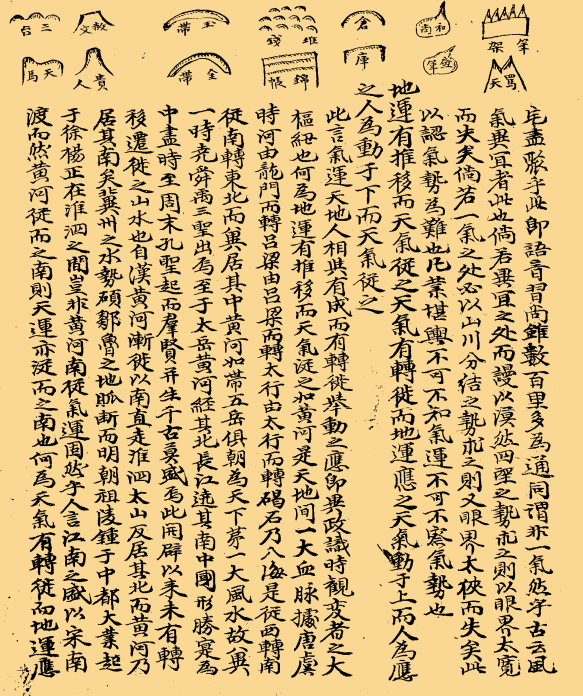 筆架
和尚
倉
堆錢
玉帶
赦文
三台
罵天
庫
錦帳
金帶
貴人
天馬
盡聚乎此即語音習尚錐數百里多為通同謂非一氣然乎古云風
氣異宜者此也倘若異宜之處而謾以漠然四望之勢求之則以眼界太寬
而失矣倘若一氣之處必以山川分結之勢求之則又眼界太狹而失矣此
以認氣勢為難也凡業堪輿不可不知氣運不可不察氣勢也
地運有推移而天氣從之天氣有轉徙而地運應之天氣動于上而人為應
之人為動于下而天氣從之
此言氣運天地人相與有成而有轉徙舉動之應即與政識時觀变者之大
樞紐也何為地運有推移而天氣從之如黃河是天地間一大血脉據唐虞
時河由龍門而轉呂梁由呂梁而轉太行由太行而轉碣石乃入海是從西轉南
從南轉東北而冀居其中黃河如帶五岳俱朝為天下第一大風水故冀
一時堯舜禹三聖出焉至于太岳黃河經其北長江遶其南中國形勝寔為
中盡時至周末孔聖起而羣賢并生千古真盛焉此開辟以来未有轉
移遷徙之山水也自漢黃河漸徙以南直走淮泗太山反居其北而黃河乃
居其南矣冀州之水勢碩鄒魯之地脈断而明朝祖陵鍾于中都大業起
于徐楊正在淮泗之間豈非黃河南徙氣運固然乎人言江南之盛以宋南
渡而然黃河徙而之南則天運亦從而之南也何為天氣有轉徙而地運應